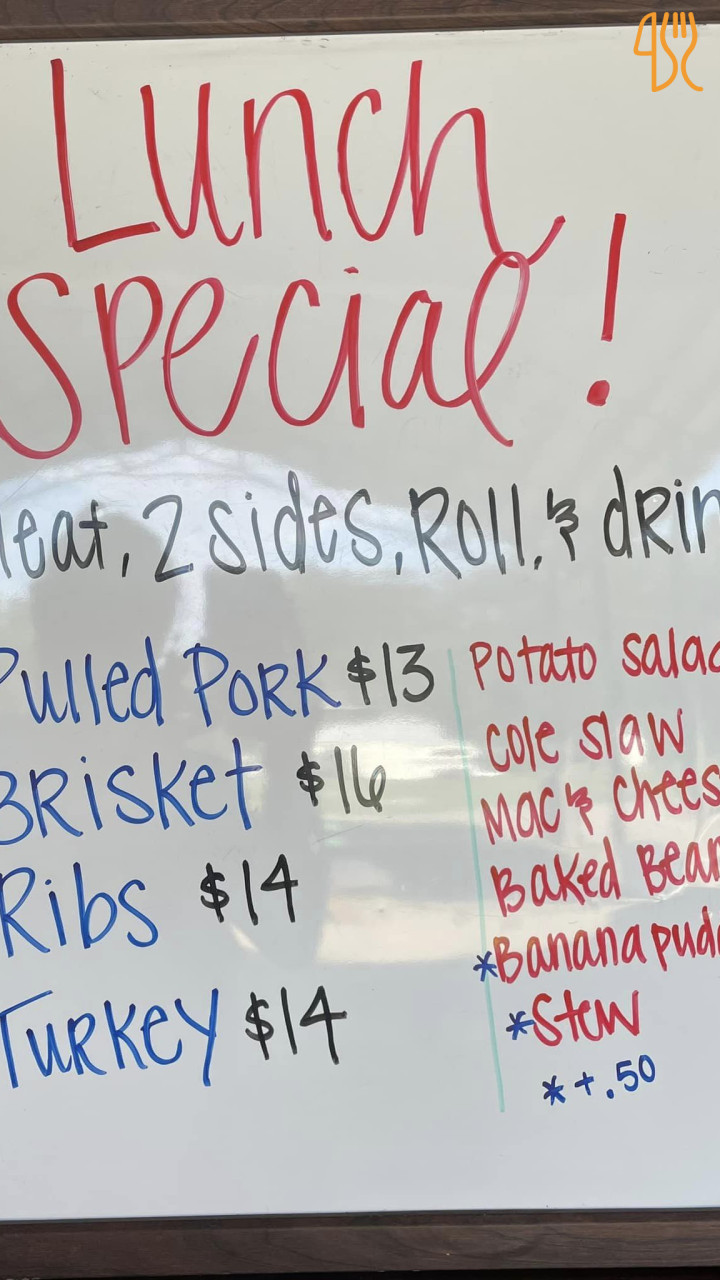 Lunch
Special!
leat, 2 sides, Roll, & drin
Pulled Pork $13
Brisket $16
Ribs $14
Turkey $14
Potato salad
Cole slaw
Mac & Chees
Baked Bean
*Banana pudd
*Stew
*+.50